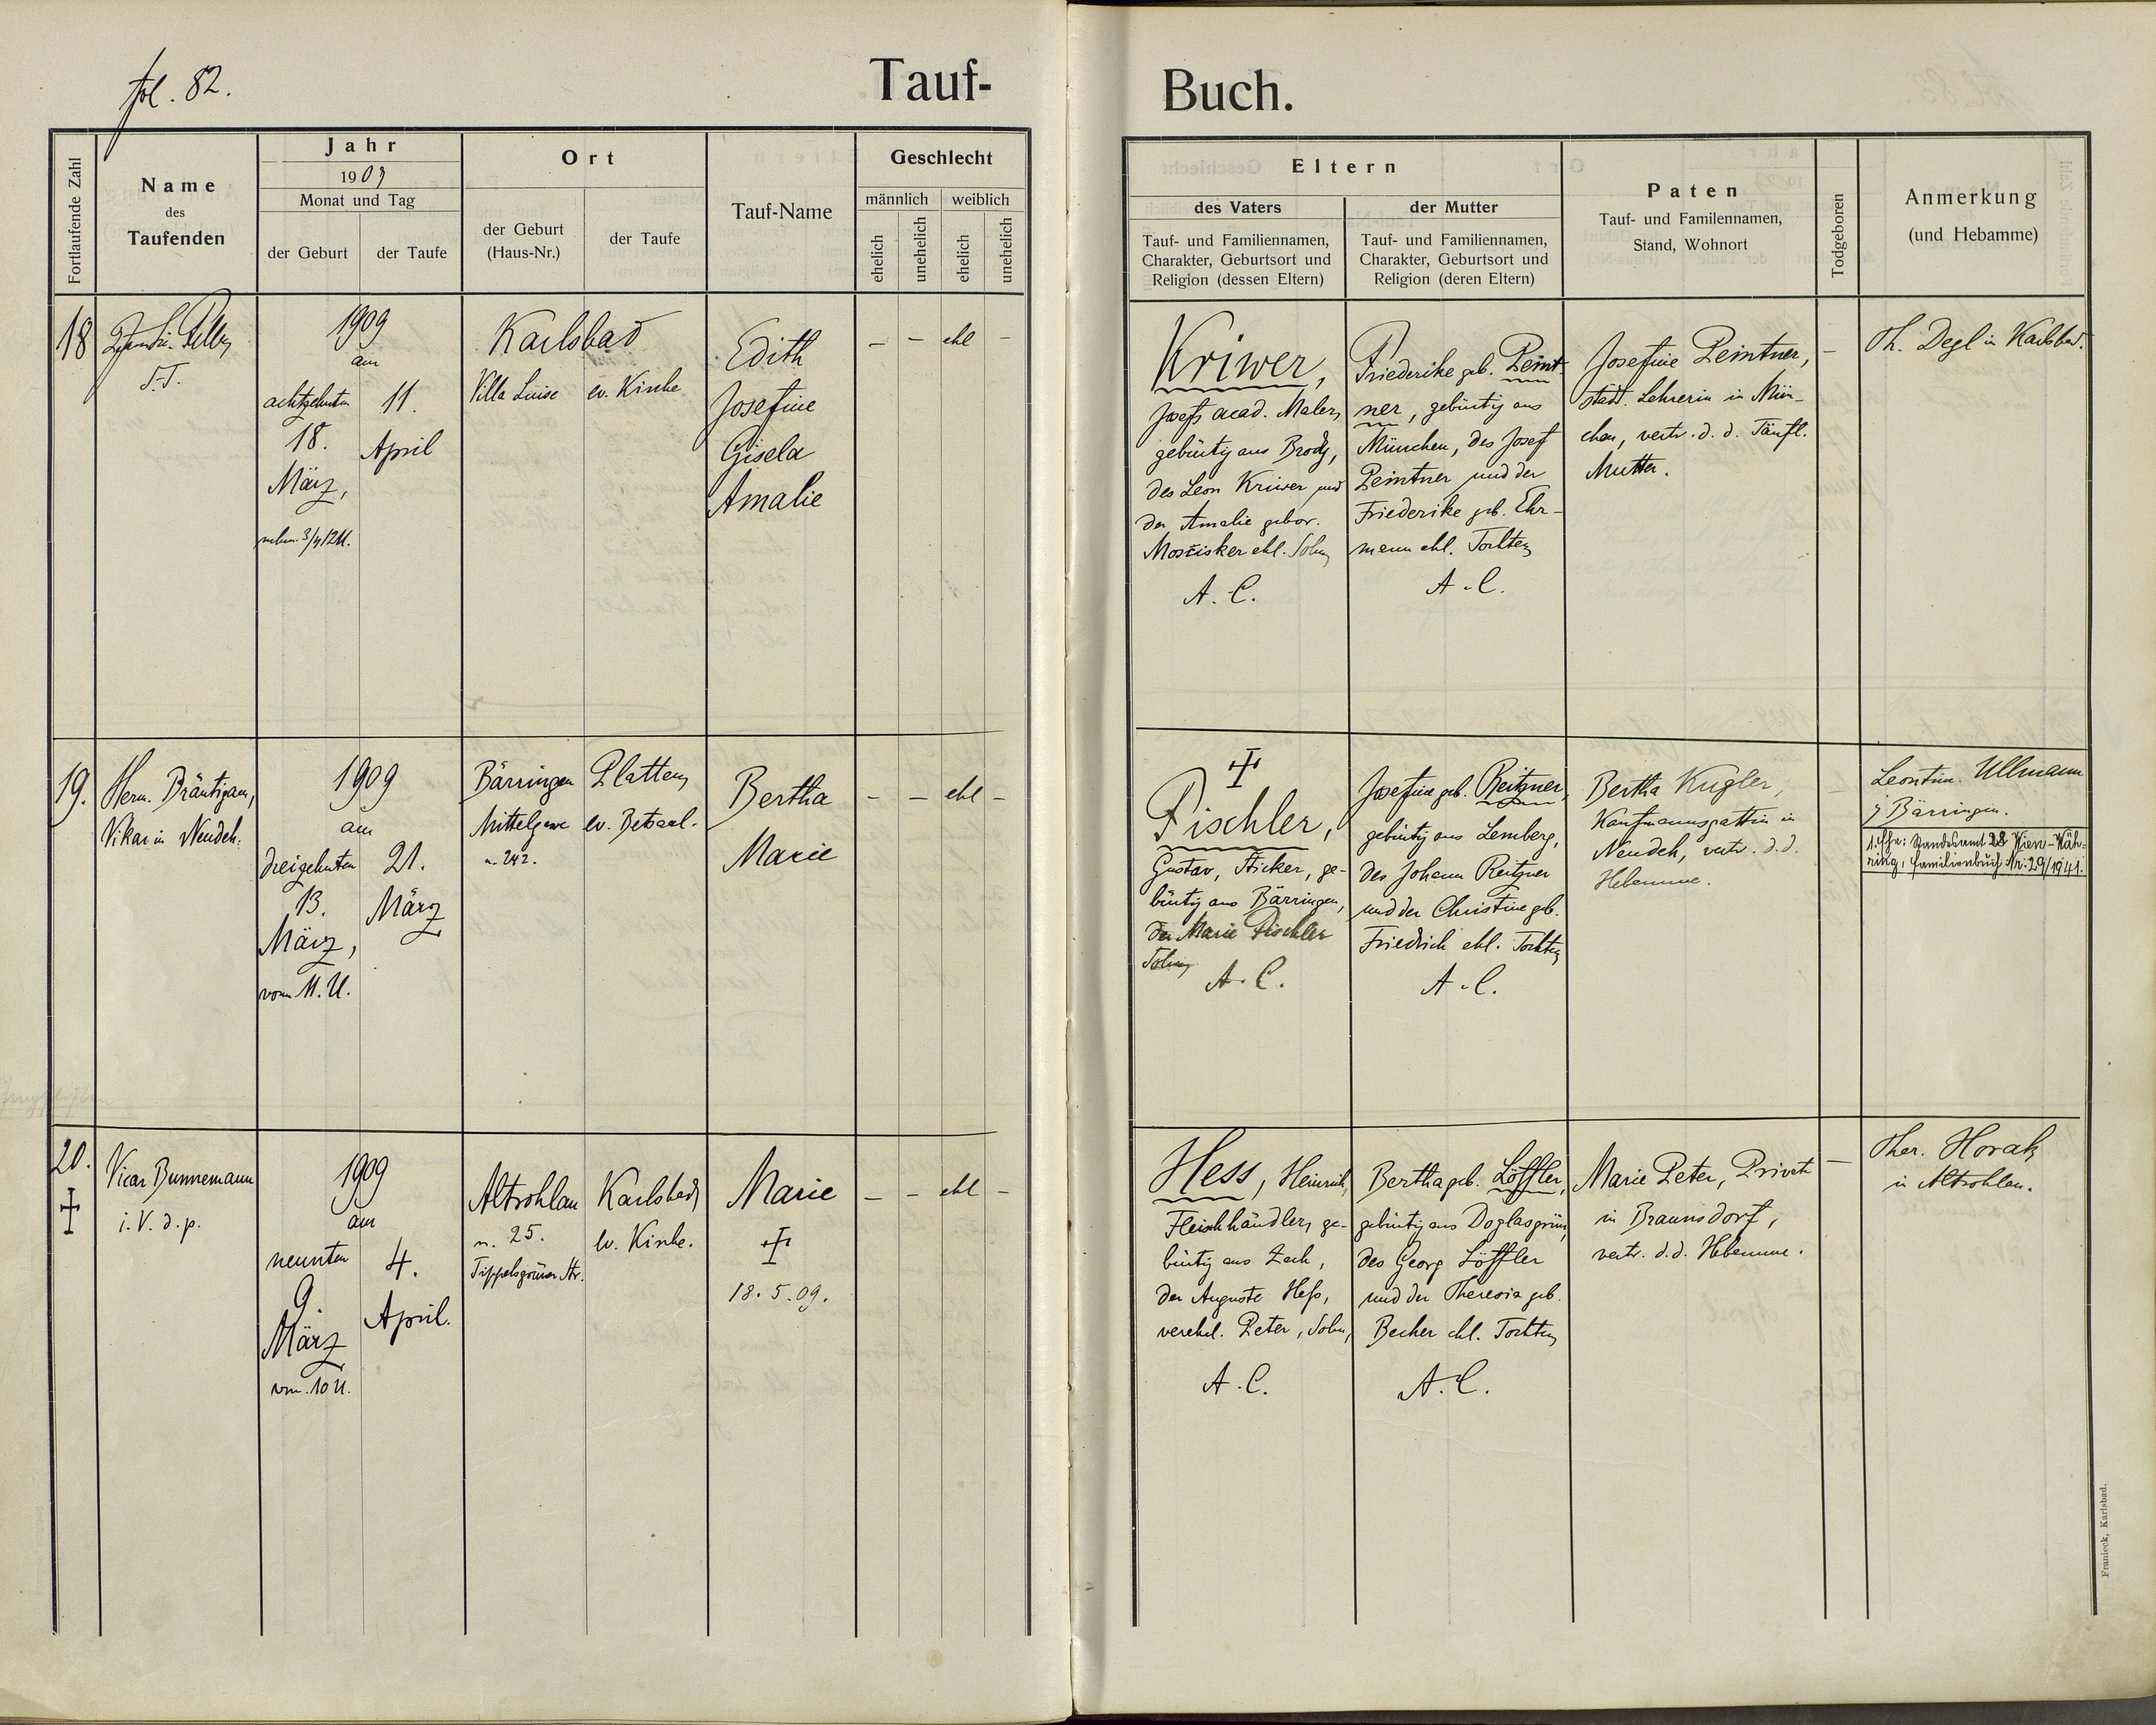 fol. 82.
Tauf-
Buch.
Fortlaufende Zahl
Name
des
Taufenden
Jahr
1909
Monat und Tag
der Geburt
der Taufe
Ort
der Geburt
(Haus-Nr.)
der Taufe
Tauf-Name
Geschlecht
männlich
weiblich
ehelich
unehelich
ehelich
unehelich
Eltern
des Vaters
Tauf- und Familiennamen,
Charakter, Geburtsort und
Religion (dessen Eltern)
der Mutter
Tauf- und Familiennamen,
Charakter, Geburtsort und
Religion (deren Eltern)
Paten
Tauf- und Familennamen,
Stand, Wohnort
Todgeboren
Anmerkung
(und Hebamme)
18
1909
am
achtzehnten
18.
März,
nchm. 3/4 12 U.
11.
April
Karlsbad
Villa Luise
ev. Kirche
Edith
Josefine
Gisela
Amalie
– – ehl –
Kriwer,
Josef, acad. Maler,
gebürtig aus Brody,
des Leon Kriwer und
der Amalie gebor.
Mosžisker ehl. Sohn,
A. C.
Friederike geb. Peint-
ner, gebürtig aus
München, des Josef
Peintner und der
Friederike geb. Ehr-
mann ehl. Tochter,
A. C.
Josefine Peintner,
städt. Lehrerin in Mün-
chen, vertr. d. d. Täufl.
Mutter.
–
Th. Degl in Karlsbad.
19.
Herm. Bräutigam,
Vikar in Neudek.
1909
am
dreizehnten
13.
März,
vorm 11. U.
21.
März
Bärringen
Mittelgasse
n. 242.
Platten,
ev. Betsaal.
Bertha
Marie
– – ehl –
Pischler,
Gustav, Sticker, ge-
bürtig aus Bärringen,
der Marie Pischler
Sohn,
A. C.
Josefine geb. Reitzner,
gebürtig aus Lemberg,
des Johann Reitzner
und der Christine geb.
Friedrich ehl. Tochter,
A. C.
Bertha Kugler,
Kaufmannsgattin in
Neudek, vertr. d. d.
Hebamme.
–
Leontin. Ullmann
Bärringen.
1. Ehe: Standesamt Wien-Wäh-
ring, Familienbuch Nr. 29/1941.
20.
Vicar Bunnemann
i. V. d. p.
1909
am
neunten
9.
März
vm. 10 U.
4.
April.
Altrohlau
n. 25.
Tippelsgrüner Str.
Karlsbad,
ev. Kirche.
Marie
18. 5. 09.
– – ehl –
Hess, Heinrich,
Fleischhändler, ge-
bürtig aus Zech,
der Auguste Heß,
verehel. Peter, Sohn,
A. C.
Bertha geb. Löffler,
gebürtig aus Doglasgrün,
des Georg Löffler
und der Theresia geb.
Becher ehl. Tochter,
A. C.
Marie Peter, Private
in Braunsdorf,
vertr. d. d. Hebamme.
–
Ther. Horak
in Altrohlau.
Franieck, Karlsbad.